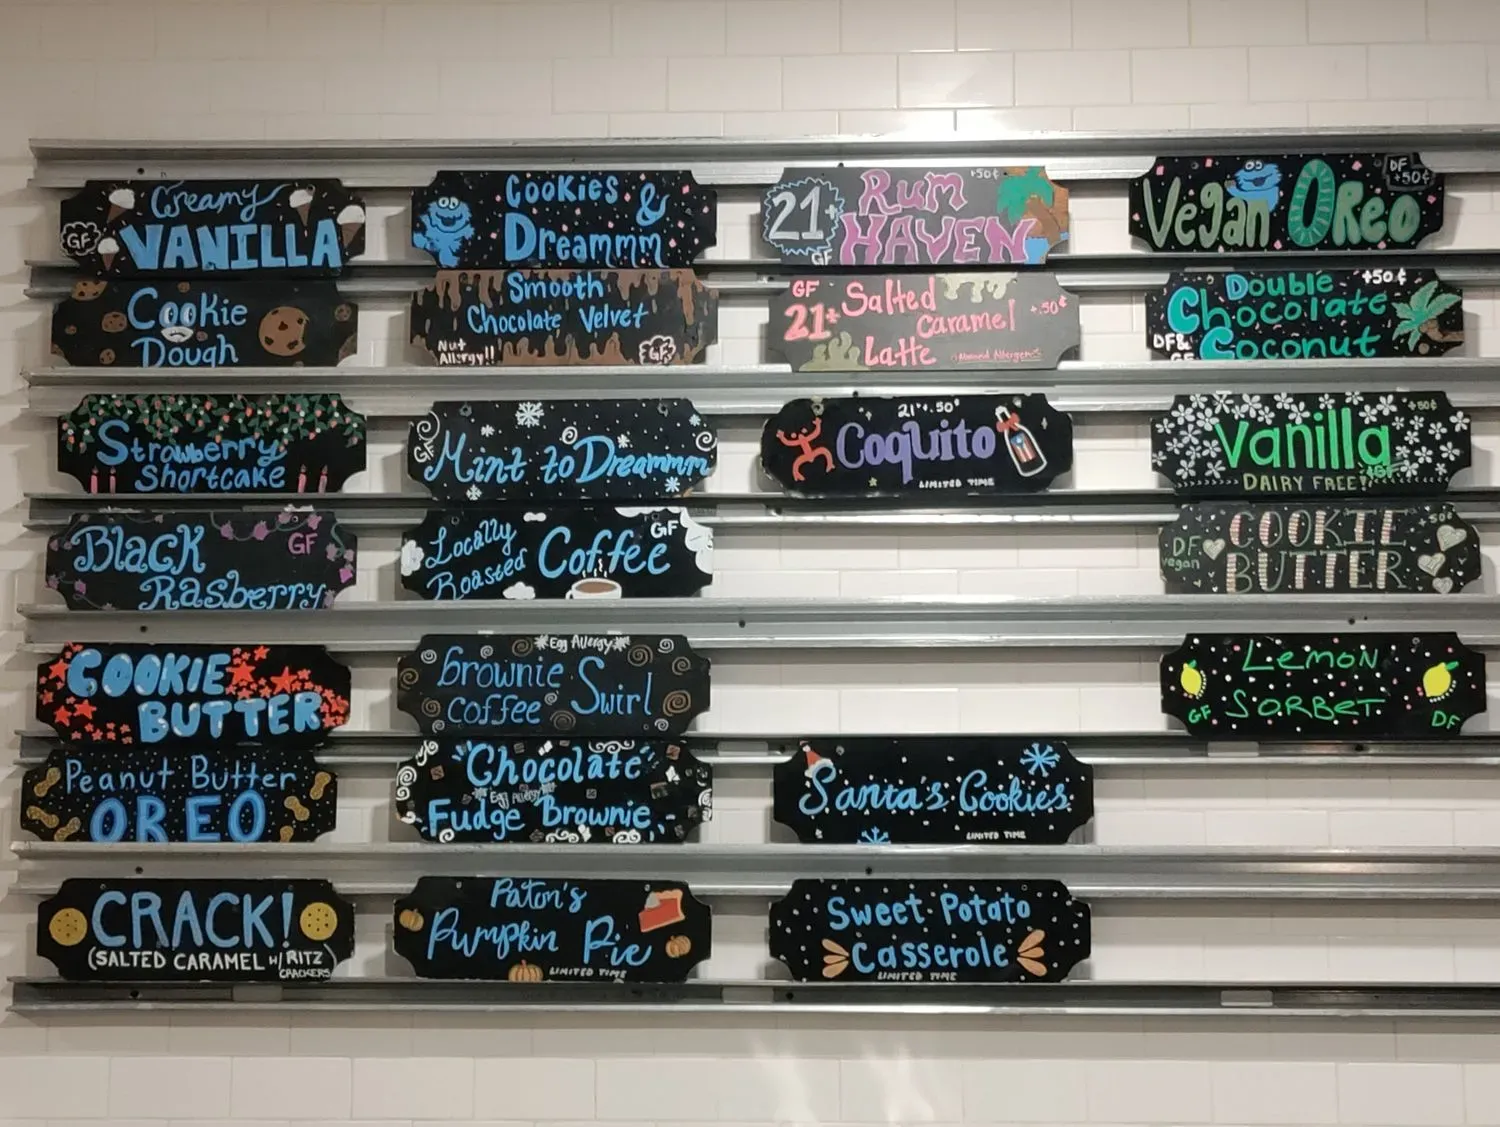 Creamy
VANILLA
GF
Cookie
Dough
Strawberry
Shortcake
Black
Rasberry
GF
COOKIE
BUTTER
Peanut Butter
OREO
CRACK!
(SALTED CARAMEL W/ RITZ
CRACKERS)
Cookies &
Dreammm
Smooth
Chocolate Velvet
Nut
Allergy!!
GF
GF
Mint to Dreammm
Locally
Roasted Coffee
GF
Egg Allergy
Brownie
Coffee Swirl
"Chocolate"
Egg Allergy
Fudge Brownie
Paton's
Pumpkin Pie
LIMITED TIME
21+
Rum
HAVEN
+50¢
GF
GF
21+ Salted
Caramel
Latte
+.50¢
Almond Allergen
21+.50¢
Coquito
LIMITED TIME
Santa's Cookies
LIMITED TIME
Sweet Potato
Casserole
LIMITED TIME
DF
+50¢
Vegan Oreo
Double
Chocolate
Coconut
+50¢
DF&
GF
Vanilla
+50¢
GF
DAIRY FREE!
COOKIE
BUTTER
+50¢
DF
vegan
Lemon
SORBET
GF
DF